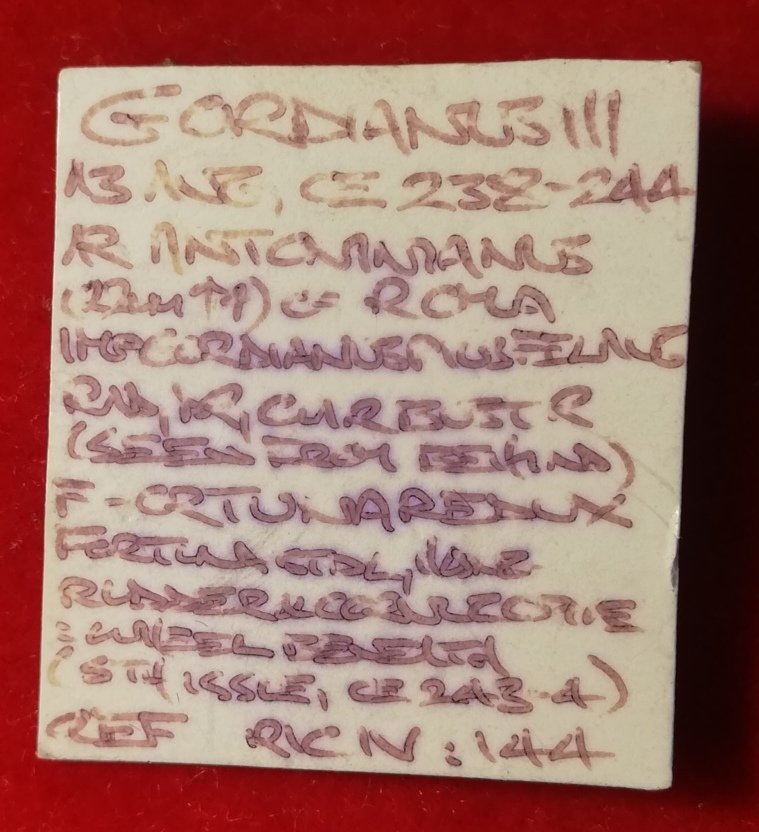 GORDIANUS III
AS AUG, CE 238-244
AR ANTONINIANUS
(22mm) ROMA
IMP GORDIANUS PIUS FEL AUG
RAD, DR, CUIR BUST R
(SEEN FROM BEHIND)
F-ORTUNA REDUX
FORTUNA STDL, HOLD
RUDDER & CORNUCOPIAE
: WHEEL BENEATH
(5TH ISSUE, CE 243-4)
REF RIC IV : 144